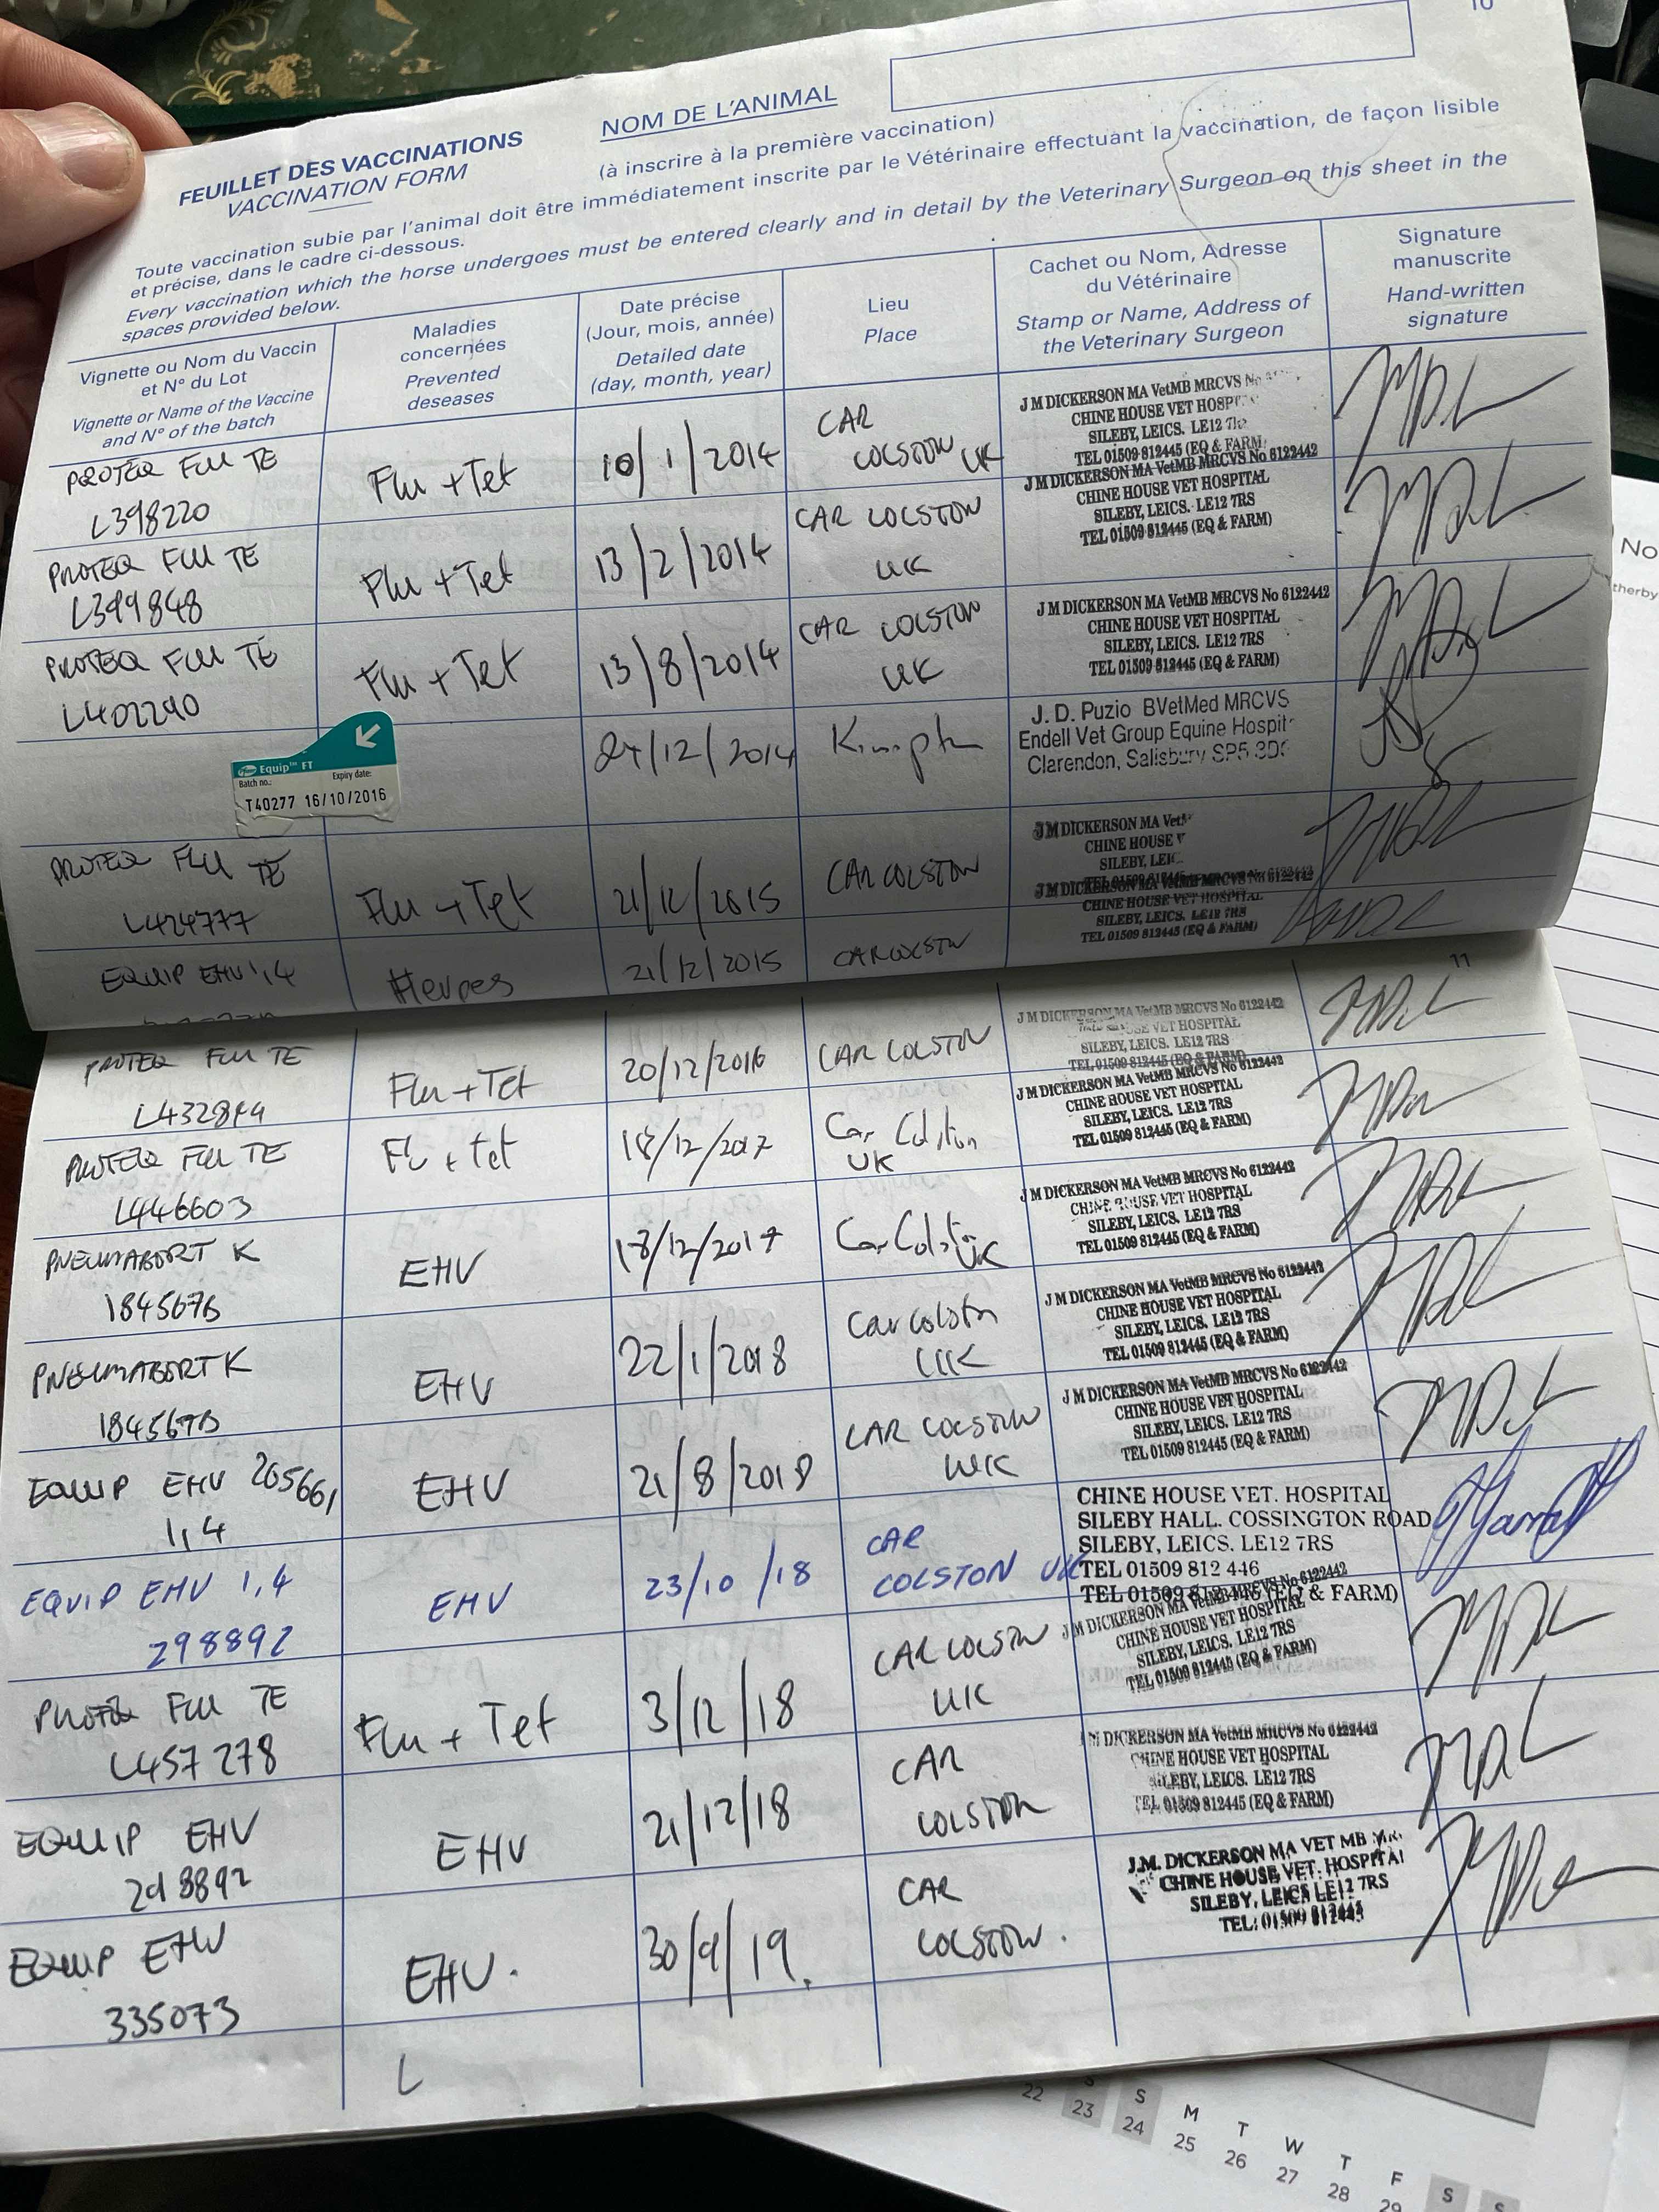 10
FEUILLET DES VACCINATIONS
VACCINATION FORM
NOM DE L'ANIMAL
(à inscrire à la première vaccination)
Toute vaccination subie par l'animal doit être immédiatement inscrite par le Vétérinaire effectuant la vaccination, de façon lisible
et précise, dans le cadre ci-dessous.
Every vaccination which the horse undergoes must be entered clearly and in detail by the Veterinary Surgeon on this sheet in the
spaces provided below.
Vignette ou Nom du Vaccin
et N° du Lot
Vignette or Name of the Vaccine
and N° of the batch
Maladies
concernées
Prevented
deseases
Date précise
(Jour, mois, année)
Detailed date
(day, month, year)
Lieu
Place
Cachet ou Nom, Adresse
du Vétérinaire
Stamp or Name, Address of
the Veterinary Surgeon
Signature
manuscrite
Hand-written
signature
PROTEQ FLU TE
L398220
Flu + Tet
10/1/2014
CAR
COLSTON UK
J M DICKERSON MA VetMB MRCVS No
CHINE HOUSE VET HOSP
SILEBY, LEICS. LE12
TEL 01509 812445 (EQ & FARM
PROTEQ FLU TE
L399848
Flu + Tet
13/2/2014
CAR COLSTON
UK
J M DICKERSON MA VetMB MRCVS No 6122442
CHINE HOUSE VET HOSPITAL
SILEBY, LEICS. LE12 7RS
TEL 01509 812445 (EQ & FARM)
PROTEQ FLU TE
L402290
Flu + Tet
13/8/2014
CAR COLSTON
UK
J M DICKERSON MA VetMB MRCVS No 6122442
CHINE HOUSE VET HOSPITAL
SILEBY, LEICS. LE12 7RS
TEL 01509 812445 (EQ & FARM)
Equip™ FT
Batch no.: Expiry date:
T40277 16/10/2016
24/12/2014
J. D. Puzio BVetMed MRCVS
Endell Vet Group Equine Hospit
Clarendon, Salisbury SP5 3D
PROTEQ FLU TE
L424777
Flu + Tet
21/12/2015
CAR COLSTON
J M DICKERSON MA Vet
CHINE HOUSE V
SILEBY, LEIC
EQUIP EHV 1,4
Herpes
21/12/2015
CAR COLSTON
J M DICKERSON MA VetMB MRCVS No 6122442
CHINE HOUSE VET HOSPITAL
SILEBY, LEICS. LE12 7RS
TEL 01509 812445 (EQ & FARM)
11
PROTEQ FLU TE
Flu + Tet
20/12/2016
CAR COLSTON
J M DICKERSON MA VetMB MRCVS No 6122442
USE VET HOSPITAL
SILEBY, LEICS. LE12 7RS
TEL 01509 812445 (EQ & FARM)
PROTEQ FLU TE
L446603
Fl + tet
18/12/2017
Car Colston
UK
J M DICKERSON MA VetMB MRCVS No 6122442
CHINE HOUSE VET HOSPITAL
SILEBY, LEICS. LE12 7RS
TEL 01509 812445 (EQ & FARM)
PNEUMABORT K
184567B
EHV
18/12/2017
Car Colston
UK
J M DICKERSON MA VetMB MRCVS No 6122442
CHINE HOUSE VET HOSPITAL
SILEBY, LEICS. LE12 7RS
TEL 01509 812445 (EQ & FARM)
PNEUMABORT K
184567B
EHV
22/1/2018
Car Colston
UK
J M DICKERSON MA VetMB MRCVS No 6122442
CHINE HOUSE VET HOSPITAL
SILEBY, LEICS. LE12 7RS
TEL 01509 812445 (EQ & FARM)
EQUIP EHV 205661
1,4
EHV
21/8/2018
CAR COLSTON
UK
J M DICKERSON MA VetMB MRCVS No 6122442
CHINE HOUSE VET HOSPITAL
SILEBY, LEICS. LE12 7RS
TEL 01509 812445 (EQ & FARM)
EQUIP EHV 1,4
298892
EHV
23/10/18
CAR
COLSTON UK
CHINE HOUSE VET. HOSPITAL
SILEBY HALL. COSSINGTON ROAD
SILEBY, LEICS. LE12 7RS
TEL 01509 812 446
TEL 01509 812445 (EQ & FARM)
PROTEQ FLU TE
L457278
Flu + Tet
3/12/18
CAR COLSTON
UK
J M DICKERSON MA VetMB MRCVS No 6122442
CHINE HOUSE VET HOSPITAL
SILEBY, LEICS. LE12 7RS
TEL 01509 812445 (EQ & FARM)
EQUIP EHV
298892
EHV
21/12/18
CAR
COLSTON
J M DICKERSON MA VetMB MRCVS No 6122442
CHINE HOUSE VET HOSPITAL
SILEBY, LEICS. LE12 7RS
TEL 01509 812445 (EQ & FARM)
EQUIP EHV
335073
EHV.
30/9/19.
CAR
COLSTON.
J.M. DICKERSON MA VET MB
CHINE HOUSE VET. HOSPITAL
SILEBY, LEICS LE12 7RS
TEL: 01509 812445
L
No
therby
S S M T W T F S S
22 23 24 25 26 27 28 29